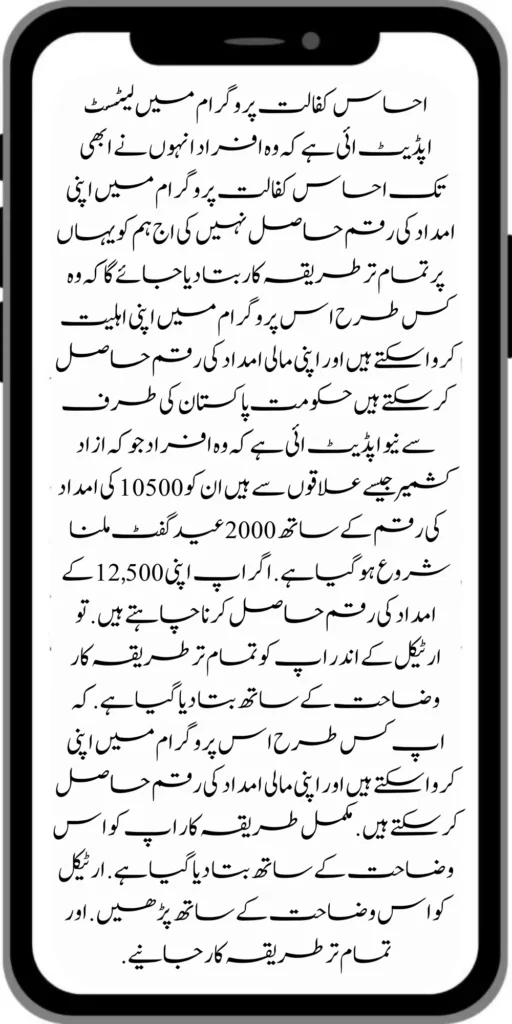 احساس کفالت پروگرام میں لیٹسٹ
اپڈیٹ ائی ہے کہ وہ افراد انہوں نے ابھی
تک احساس کفالت پروگرام میں اپنی
امداد کی رقم حاصل نہیں کی اج ہم کو یہاں
پر تمام تر طریقہ کار بتا دیا جائے گا کہ وہ
کس طرح اس پروگرام میں اپنی اہلیت
کروا سکتے ہیں اور اپنی مالی امداد کی رقم حاصل
کر سکتے ہیں حکومت پاکستان کی طرف
سے نیو اپڈیٹ ائی ہے کہ وہ افراد جو کہ ازاد
کشمیر جیسے علاقوں سے ہیں ان کو 10500 کی امداد
کی رقم کے ساتھ 2000 عید گفٹ ملنا
شروع ہو گیا ہے. اگر اپ اپنی 12,500 کے
امداد کی رقم حاصل کرنا چاہتے ہیں. تو
ارٹیکل کے اندر اپ کو تمام تر طریقہ کار
وضاحت کے ساتھ بتا دیا گیا ہے. کہ
اپ کس طرح اس پروگرام میں اپنی
کروا سکتے ہیں اور اپنی مالی امداد کی رقم حاصل
کر سکتے ہیں. مکمل طریقہ کار اپ کو اس
وضاحت کے ساتھ بتا دیا گیا ہے. ارٹیکل
کو اس وضاحت کے ساتھ پڑھیں. اور
تمام تر طریقہ کار جانیے.